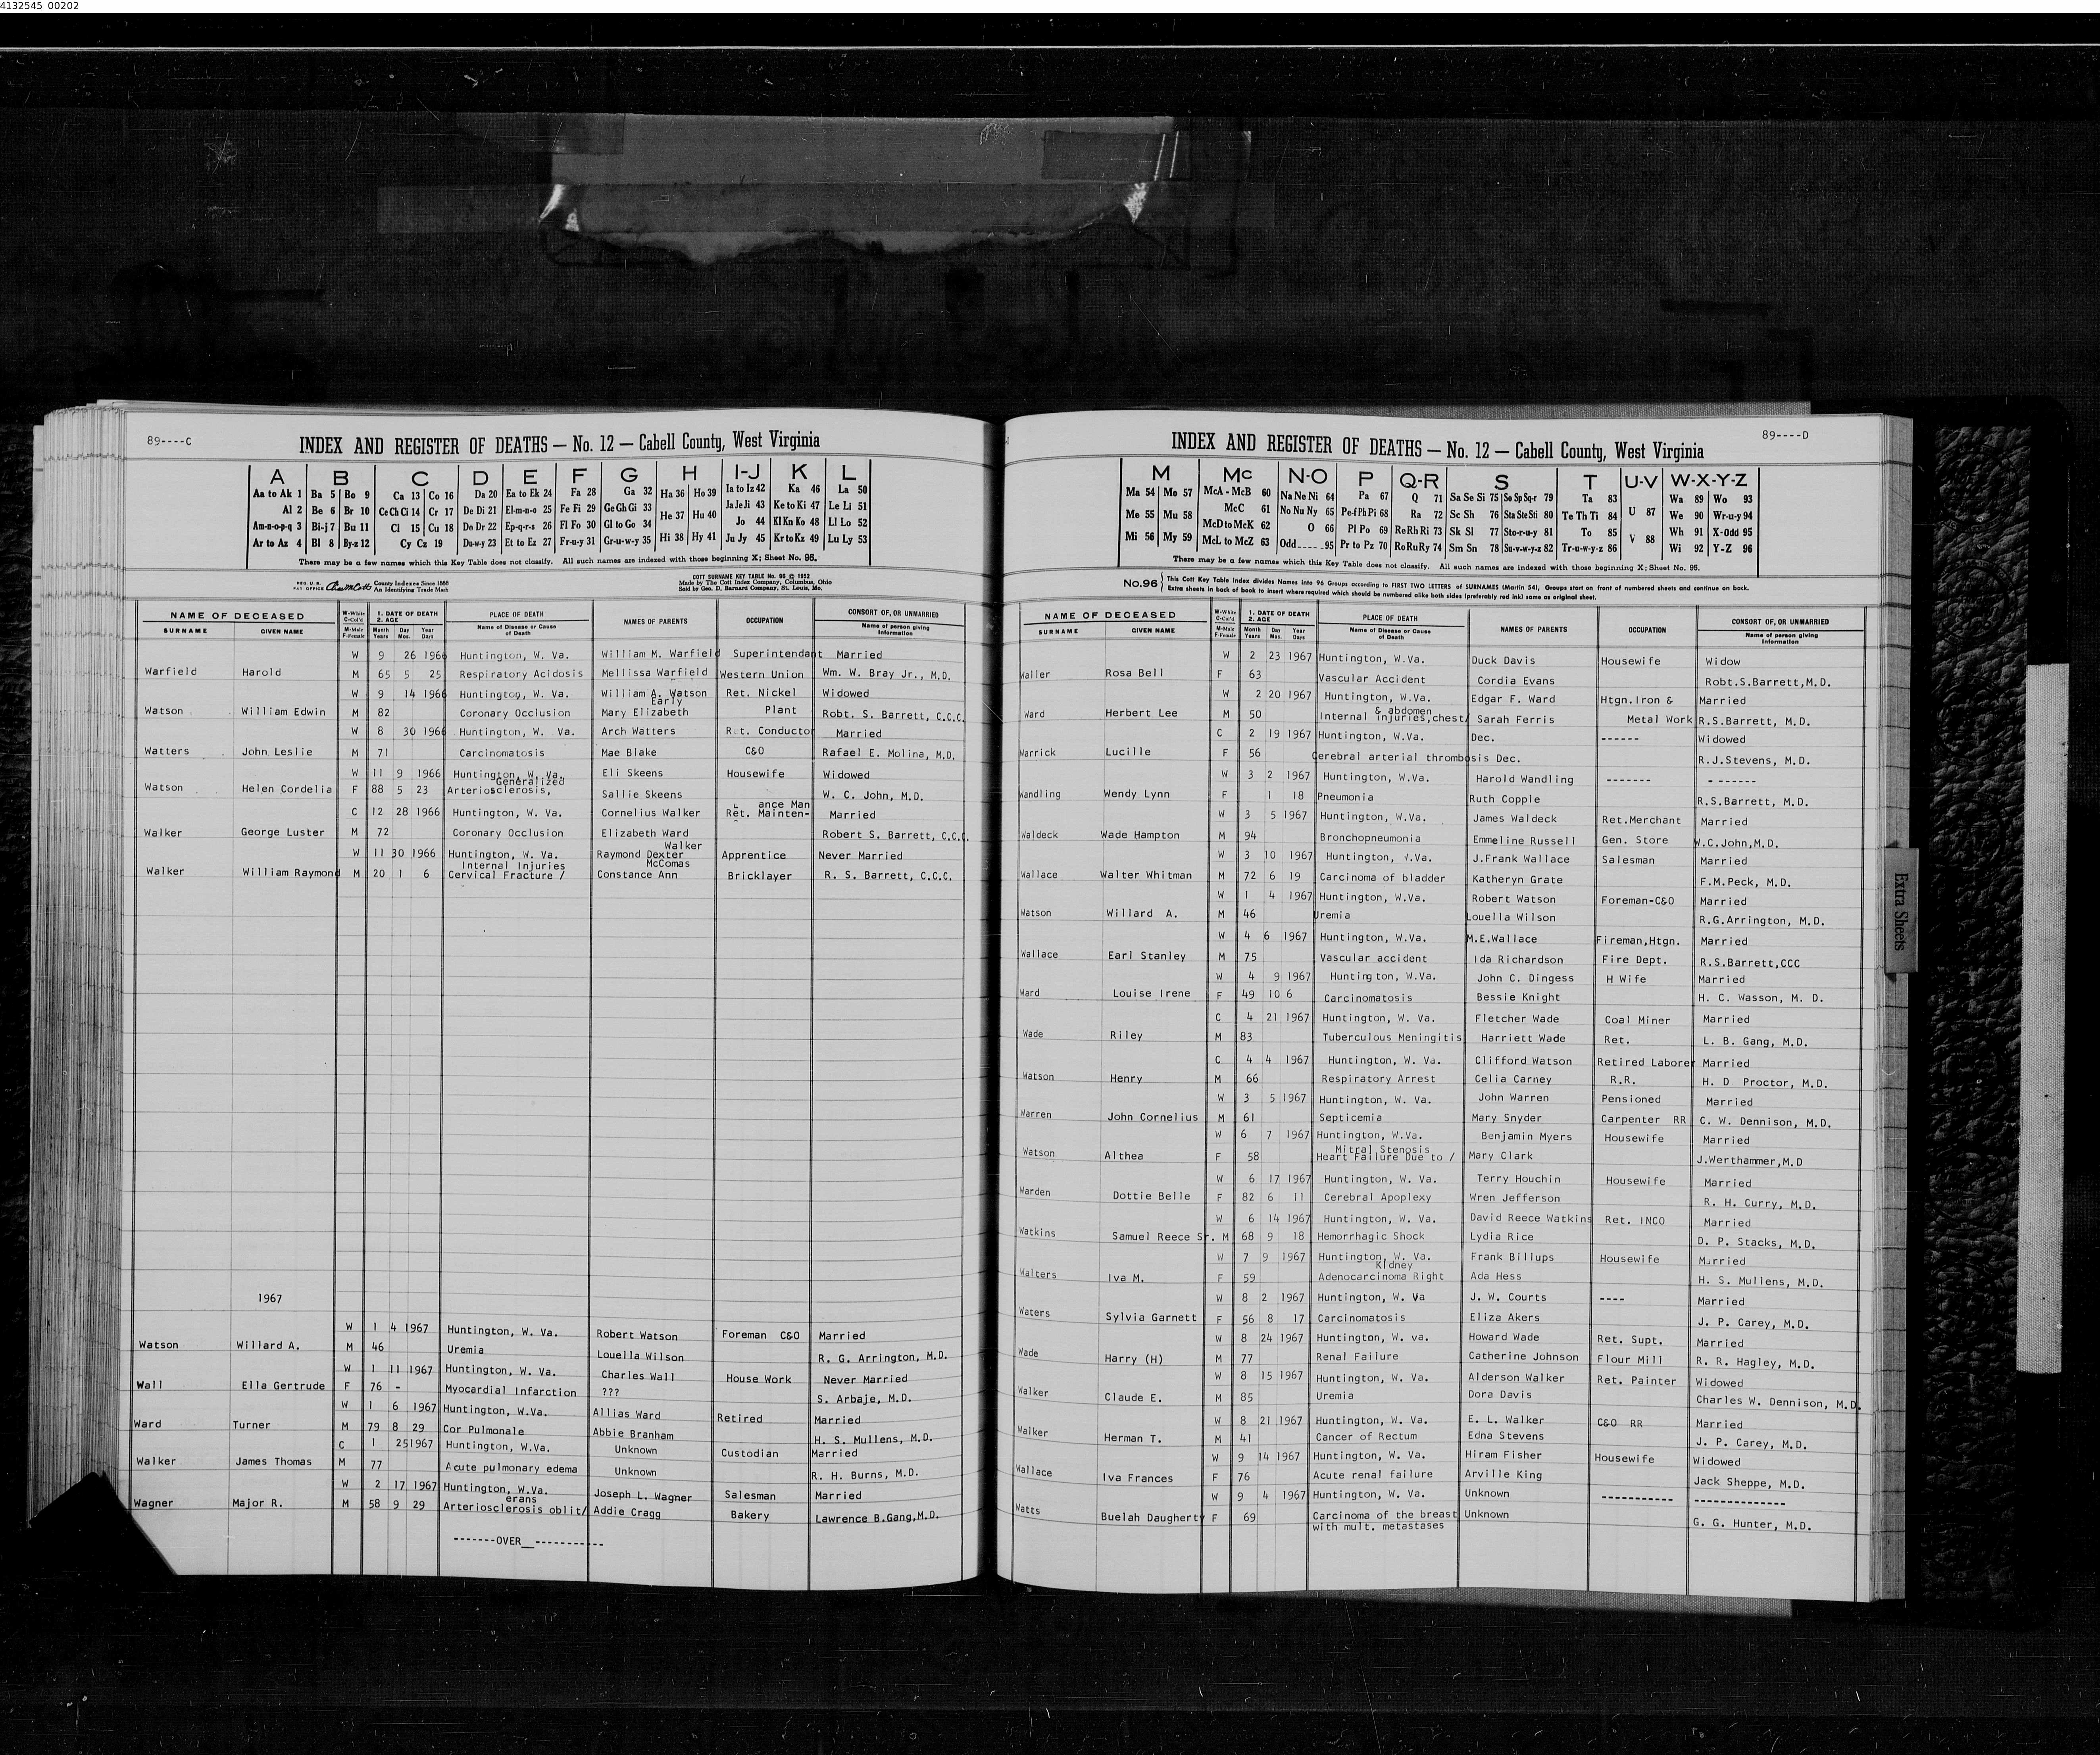 4132545_00202
89----C
INDEX AND REGISTER OF DEATHS — No. 12 — Cabell County, West Virginia
A B C D E F G H I-J K L
Aa to Ak 1 Ba 5 Bo 9 Ca 13 Co 16 Da 20 Ea to Ek 24 Fa 28 Ga 32 Ha 36 Ho 39 Ia to Iz 42 Ka 46 La 50
Al 2 Be 6 Br 10 Ce Ch Ci 14 Cr 17 De Di 21 El-m-n-o 25 Fe Fi 29 Ge Gh Gi 33 He 37 Hu 40 Ja Je Ji 43 Ke to Ki 47 Le Li 51
Am-n-o-p-q 3 Bi-j 7 Bu 11 Cl 15 Cu 18 Do Dr 22 Ep-q-r-s 26 Fl Fo 30 Gl to Go 34 Jo 44 Kl Kn Ko 48 Ll Lo 52
Ar to Az 4 Bl 8 By-z 12 Cy Cz 19 Du-w-y 23 Et to Ez 27 Fr-u-y 31 Gr-u-w-y 35 Hi 38 Hy 41 Ju Jy 45 Kr to Kz 49 Lu Ly 53
There may be a few names which this Key Table does not classify. All such names are indexed with those beginning X; Sheet No. 95.
REG. U. S. PAT. OFFICE County Indexes Since 1888
An Identifying Trade Mark
COTT SURNAME KEY TABLE No. 96 © 1952
Made by The Cott Index Company, Columbus, Ohio
Sold by Geo. D. Barnard Company, St. Louis, Mo.
NAME OF DECEASED W-White C-Col'd 1. DATE OF DEATH 2. AGE PLACE OF DEATH NAMES OF PARENTS OCCUPATION CONSORT OF, OR UNMARRIED
SURNAME GIVEN NAME M-Male F-Female Month Years Day Mos. Year Days Name of Disease or Cause of Death Name of person giving Information
W 9 26 1966 Huntington, W. Va. William M. Warfield Superintendant Married
Warfield Harold M 65 5 25 Respiratory Acidosis Mellissa Warfield Western Union Wm. W. Bray Jr., M.D.
W 9 14 1966 Huntington, W. Va. William A. Watson Ret. Nickel Widowed
Early
Watson William Edwin M 82 Coronary Occlusion Mary Elizabeth Plant Robt. S. Barrett, C.C.C.
W 8 30 1966 Huntington, W. Va. Arch Watters Ret. Conductor Married
Watters John Leslie M 71 Carcinomatosis Mae Blake C&O Rafael E. Molina, M.D.
W 11 9 1966 Huntington, W. Va. Eli Skeens Housewife Widowed
Generalized
Watson Helen Cordelia F 88 5 23 Arteriosclerosis, Sallie Skeens W. C. John, M.D.
ance Man
C 12 28 1966 Huntington, W. Va. Cornelius Walker Ret. Mainten- Married
Walker George Luster M 72 Coronary Occlusion Elizabeth Ward Robert S. Barrett, C.C.C.
Walker
W 11 30 1966 Huntington, W. Va. Raymond Dexter Apprentice Never Married
Internal Injuries McComas
Walker William Raymond M 20 1 6 Cervical Fracture / Constance Ann Bricklayer R. S. Barrett, C.C.C.
1967
W 1 4 1967 Huntington, W. Va. Robert Watson Foreman C&O Married
Watson Willard A. M 46 Uremia Louella Wilson R. G. Arrington, M.D.
W 1 11 1967 Huntington, W. Va. Charles Wall House Work Never Married
Wall Ella Gertrude F 76 - Myocardial Infarction ??? S. Arbaje, M.D.
W 1 6 1967 Huntington, W.Va. Allias Ward Retired Married
Ward Turner M 79 8 29 Cor Pulmonale Abbie Branham H. S. Mullens, M.D.
C 1 25 1967 Huntington, W.Va. Unknown Custodian Married
Walker James Thomas M 77 Acute pulmonary edema Unknown R. H. Burns, M.D.
W 2 17 1967 Huntington, W.Va. Joseph L. Wagner Salesman Married
erans
Wagner Major R. M 58 9 29 Arteriosclerosis oblit/ Addie Cragg Bakery Lawrence B.Gang,M.D.
-------OVER__-----------
89----D
INDEX AND REGISTER OF DEATHS — No. 12 — Cabell County, West Virginia
M Mc N-O P Q-R S T U-V W-X-Y-Z
Ma 54 Mo 57 McA - McB 60 Na Ne Ni 64 Pa 67 Q 71 Sa Se Si 75 Se Sp Sq-r 79 Ta 83 U 87 Wa 89 Wo 93
Me 55 Mu 58 McC 61 No Nu Ny 65 Pe-f Ph Pi 68 Ra 72 Sc Sh 76 Sta Ste Sti 80 Te Th Ti 84 We 90 Wr-u-y 94
McD to McK 62 O 66 Pl Po 69 Re Rh Ri 73 Sk Sl 77 Sto-r-u-y 81 To 85 V 88 Wh 91 X-Odd 95
Mi 56 My 59 McL to McZ 63 Odd-----95 Pr to Pz 70 Ro Ru Ry 74 Sm Sn 78 Su-v-w-y-z 82 Tr-u-w-y-z 86 Wi 92 Y-Z 96
There may be a few names which this Key Table does not classify. All such names are indexed with those beginning X; Sheet No. 95.
No.96 { This Cott Key Table Index divides Names into 96 Groups according to FIRST TWO LETTERS of SURNAMES (Martin 54), Groups start on front of numbered sheets and continue on back.
Extra sheets in back of book to insert where required which should be numbered alike both sides (preferably red ink) same as original sheet.
NAME OF DECEASED W-White C-Col'd 1. DATE OF DEATH 2. AGE PLACE OF DEATH NAMES OF PARENTS OCCUPATION CONSORT OF, OR UNMARRIED
SURNAME GIVEN NAME M-Male F-Female Month Years Day Mos. Year Days Name of Disease or Cause of Death Name of person giving Information
W 2 23 1967 Huntington, W.Va. Duck Davis Housewife Widow
Waller Rosa Bell F 63 Vascular Accident Cordia Evans Robt.S.Barrett,M.D.
W 2 20 1967 Huntington, W.Va. Edgar F. Ward Htgn.Iron & Married
& abdomen
Ward Herbert Lee M 50 Internal injuries,chest/ Sarah Ferris Metal Work R.S.Barrett, M.D.
C 2 19 1967 Huntington, W.Va. Dec. ------ Widowed
Warrick Lucille F 56 Cerebral arterial thrombosis Dec. R.J.Stevens, M.D.
W 3 2 1967 Huntington, W.Va. Harold Wandling ------- - -------
Wandling Wendy Lynn F 1 18 Pneumonia Ruth Copple R.S.Barrett, M.D.
W 3 5 1967 Huntington, W.Va. James Waldeck Ret.Merchant Married
Waldeck Wade Hampton M 94 Bronchopneumonia Emmeline Russell Gen. Store W.C.John,M.D.
W 3 10 1967 Huntington, W.Va. J.Frank Wallace Salesman Married
Wallace Walter Whitman M 72 6 19 Carcinoma of bladder Katheryn Grate F.M.Peck, M.D.
W 1 4 1967 Huntington, W.Va. Robert Watson Foreman-C&O Married
Watson Willard A. M 46 Uremia Louella Wilson R.G.Arrington, M.D.
W 4 6 1967 Huntington, W.Va. M.E.Wallace Fireman,Htgn. Married
Wallace Earl Stanley M 75 Vascular accident Ida Richardson Fire Dept. R.S.Barrett,CCC
W 4 9 1967 Huntington, W.Va. John C. Dingess H Wife Married
Ward Louise Irene F 49 10 6 Carcinomatosis Bessie Knight H. C. Wasson, M. D.
C 4 21 1967 Huntington, W. Va. Fletcher Wade Coal Miner Married
Wade Riley M 83 Tuberculous Meningitis Harriett Wade Ret. L. B. Gang, M.D.
C 4 4 1967 Huntington, W. Va. Clifford Watson Retired Laborer Married
Watson Henry M 66 Respiratory Arrest Celia Carney R.R. H. D Proctor, M.D.
W 3 5 1967 Huntington, W. Va. John Warren Pensioned Married
Warren John Cornelius M 61 Septicemia Mary Snyder Carpenter RR C. W. Dennison, M.D.
W 6 7 1967 Huntington, W.Va. Benjamin Myers Housewife Married
Mitral Stenosis
Watson Althea F 58 Heart Failure Due to / Mary Clark J.Werthammer,M.D
W 6 17 1967 Huntington, W. Va. Terry Houchin Housewife Married
Warden Dottie Belle F 82 6 11 Cerebral Apoplexy Wren Jefferson R. H. Curry, M.D.
W 6 14 1967 Huntington, W. Va. David Reece Watkins Ret. INCO Married
Watkins Samuel Reece Sr. M 68 9 18 Hemorrhagic Shock Lydia Rice D. P. Stacks, M.D.
W 7 9 1967 Huntington, W. Va. Frank Billups Housewife Married
Kidney
Walters Iva M. F 59 Adenocarcinoma Right Ada Hess H. S. Mullens, M.D.
W 8 2 1967 Huntington, W. Va J. W. Courts ---- Married
Waters Sylvia Garnett F 56 8 17 Carcinomatosis Eliza Akers J. P. Carey, M.D.
W 8 24 1967 Huntington, W. va. Howard Wade Ret. Supt. Married
Wade Harry (H) M 77 Renal Failure Catherine Johnson Flour Mill R. R. Hagley, M.D.
W 8 15 1967 Huntington, W. Va. Alderson Walker Ret. Painter Widowed
Walker Claude E. M 85 Uremia Dora Davis Charles W. Dennison, M.D.
W 8 21 1967 Huntington, W. Va. E. L. Walker C&O RR Married
Walker Herman T. M 41 Cancer of Rectum Edna Stevens J. P. Carey, M.D.
W 9 14 1967 Huntington, W. Va. Hiram Fisher Housewife Widowed
Wallace Iva Frances F 76 Acute renal failure Arville King Jack Sheppe, M.D.
W 9 4 1967 Huntington, W. Va. Unknown ----------- --------------
Watts Buelah Daugherty F 69 Carcinoma of the breast Unknown G. G. Hunter, M.D.
with mult. metastases
Extra Sheets